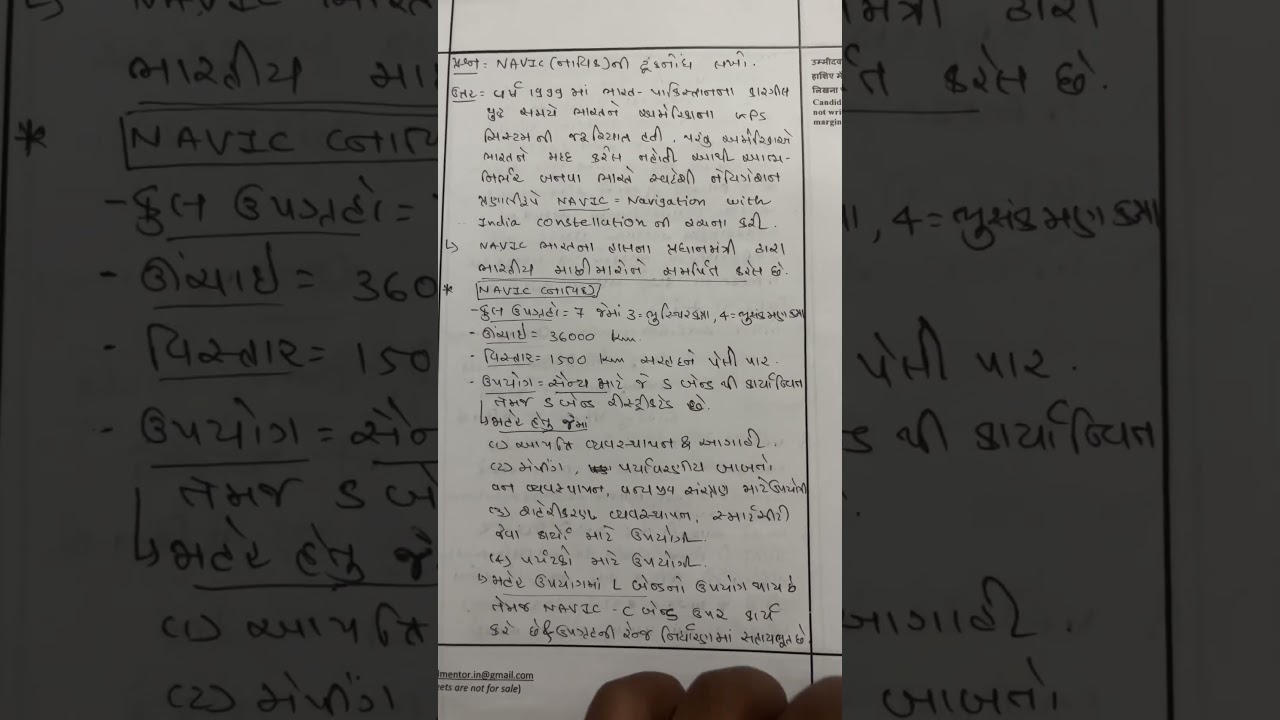 પ્રશ્ન : NAVIC (નાવિક) ની ટૂંકનોંધ લખો.
ઉત્તર = વર્ષ ૧૯૯૯ માં ભારત - પાકિસ્તાનના કારગીલ
યુદ્ધ સમયે ભારતને અમેરિકાના GPS
સિસ્ટમ ની જરૂરિયાત હતી. પરંતુ અમેરિકાએ
ભારતને મદદ કરેલ નહોતી આથી આત્મ-
નિર્ભર બનવા ભારતે સ્વદેશી નેવિગેશન
પ્રણાલીરૂપે NAVIC = Navigation with
India constellation ની રચના કરી.
↳ NAVIC ભારતના હાલના પ્રધાનમંત્રી દ્વારા
ભારતીય માછીમારોને સમર્પિત કરેલ છે.
* NAVIC (નાવિક)
- કુલ ઉપગ્રહો = 7 જેમાં 3 = ભુસ્થિરકક્ષા, 4 = ભુસંક્રમણ કક્ષા
- ઊંચાઇ = 36000 km.
- વિસ્તાર = 1500 km સરહદને પેલી પાર.
- ઉપયોગ = સૈન્ય માટે જે S બેન્ડ થી કાર્યાન્વિત
તેમજ S બેન્ડ રીસ્ટ્રીક્ટેડ છે.
↳ મદદ હેતુ જેમાં
(1) આપત્તિ વ્યવસ્થાપન & આગાહી.
(2) મેપીંગ, પર્યાવરણીય બાબતો
વન વ્યવસ્થાપન, વન્યજીવ સંરક્ષણ માટે ઉપયોગી
(3) શહેરીકરણ વ્યવસ્થાપન, સ્માર્ટસીટી
જેવા કાર્યો માટે ઉપયોગી.
(4) પર્યટકો માટે ઉપયોગી.
↳ ઉપયોગમાં L બેન્ડનો ઉપયોગ થાય છે
તેમજ NAVIC - C બેન્ડ ઉપર કાર્ય
કરે છે & ઉપગ્રહની રેન્જ નિર્ધારણમાં સહાયભૂત છે.
उम्मीदव
हाशिए में
लिखना
Candid
not wri
margin
lmentor.in@gmail.com
eets are not for sale)